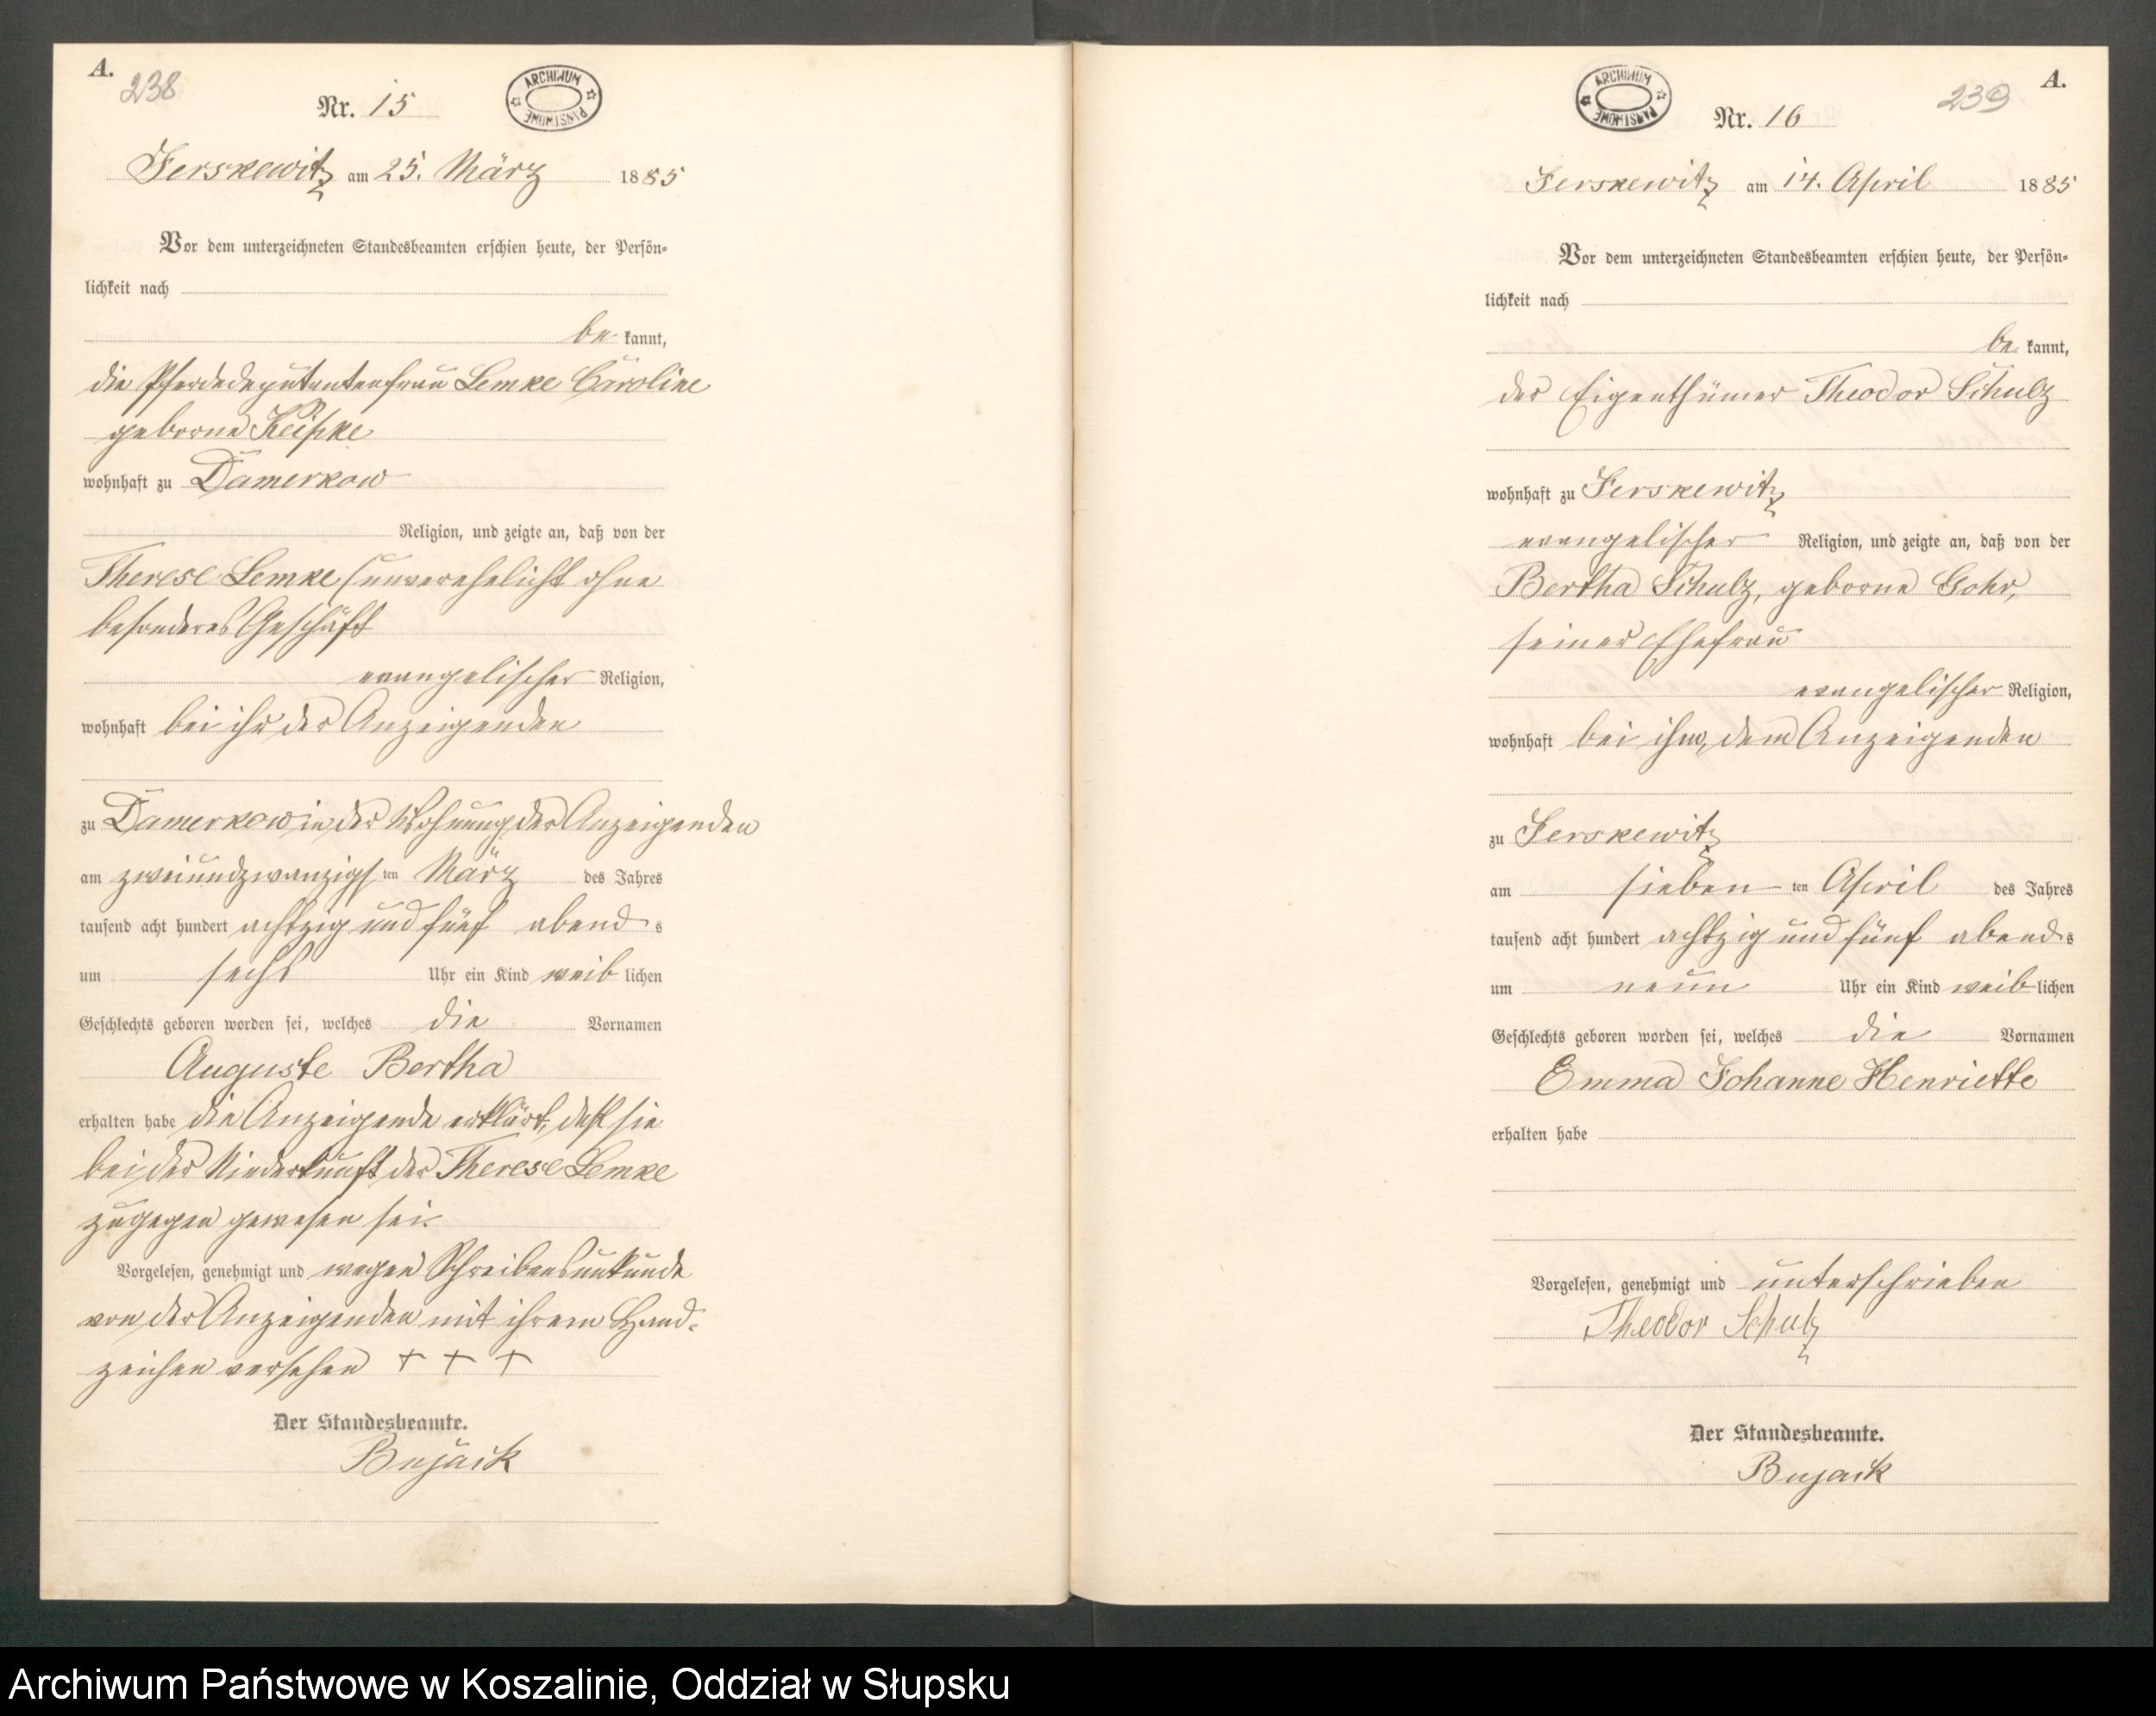 A.
238
Nr. 15
ARCHIWUM PAŃSTWOWE
Jerskewitz am 25. März 1885
Vor dem unterzeichneten Standesbeamten erschien heute, der Persön-
lichkeit nach
be kannt,
die Pferdedeputantenfrau Lemke Caroline
geborne
wohnhaft zu Damerkow
Religion, und zeigte an, daß von der
Therese Lemke (unverehelicht ohne
besonderes Geschäft
evangelischer Religion,
wohnhaft bei ihr der Anzeigenden
zu Damerkow in der Wohnung der Anzeigenden
am zweiundzwanzigsten März des Jahres
tausend acht hundert achtzig und fünf abends
um sechs Uhr ein Kind weiblichen
Geschlechts geboren worden sei, welches die Vornamen
Auguste Bertha
erhalten habe die Anzeigende erklärt, daß sie
bei der Niederkunft der Therese Lemke
zugegen gewesen sei.
Vorgelesen, genehmigt und wegen Schreibensunkunde
von der Anzeigenden mit ihrem Hand-
zeichen versehen + + +
Der Standesbeamte.
Bujack
ARCHIWUM PAŃSTWOWE
239
A.
Nr. 16
Jerskewitz am 14. April 1885
Vor dem unterzeichneten Standesbeamten erschien heute, der Persön-
lichkeit nach
be kannt,
der Eigenthümer Theodor Schulz
wohnhaft zu Jerskewitz
evangelischer Religion, und zeigte an, daß von der
Bertha Schulz, geborne Gohr,
seiner Ehefrau
evangelischer Religion,
wohnhaft bei ihm, dem Anzeigenden
zu Jerskewitz
am siebenten April des Jahres
tausend acht hundert achtzig und fünf abends
um neun Uhr ein Kind weiblichen
Geschlechts geboren worden sei, welches die Vornamen
Emma Johanne Henriette
erhalten habe
Vorgelesen, genehmigt und unterschrieben
Theodor Schulz
Der Standesbeamte.
Bujack
Archiwum Państwowe w Koszalinie, Oddział w Słupsku